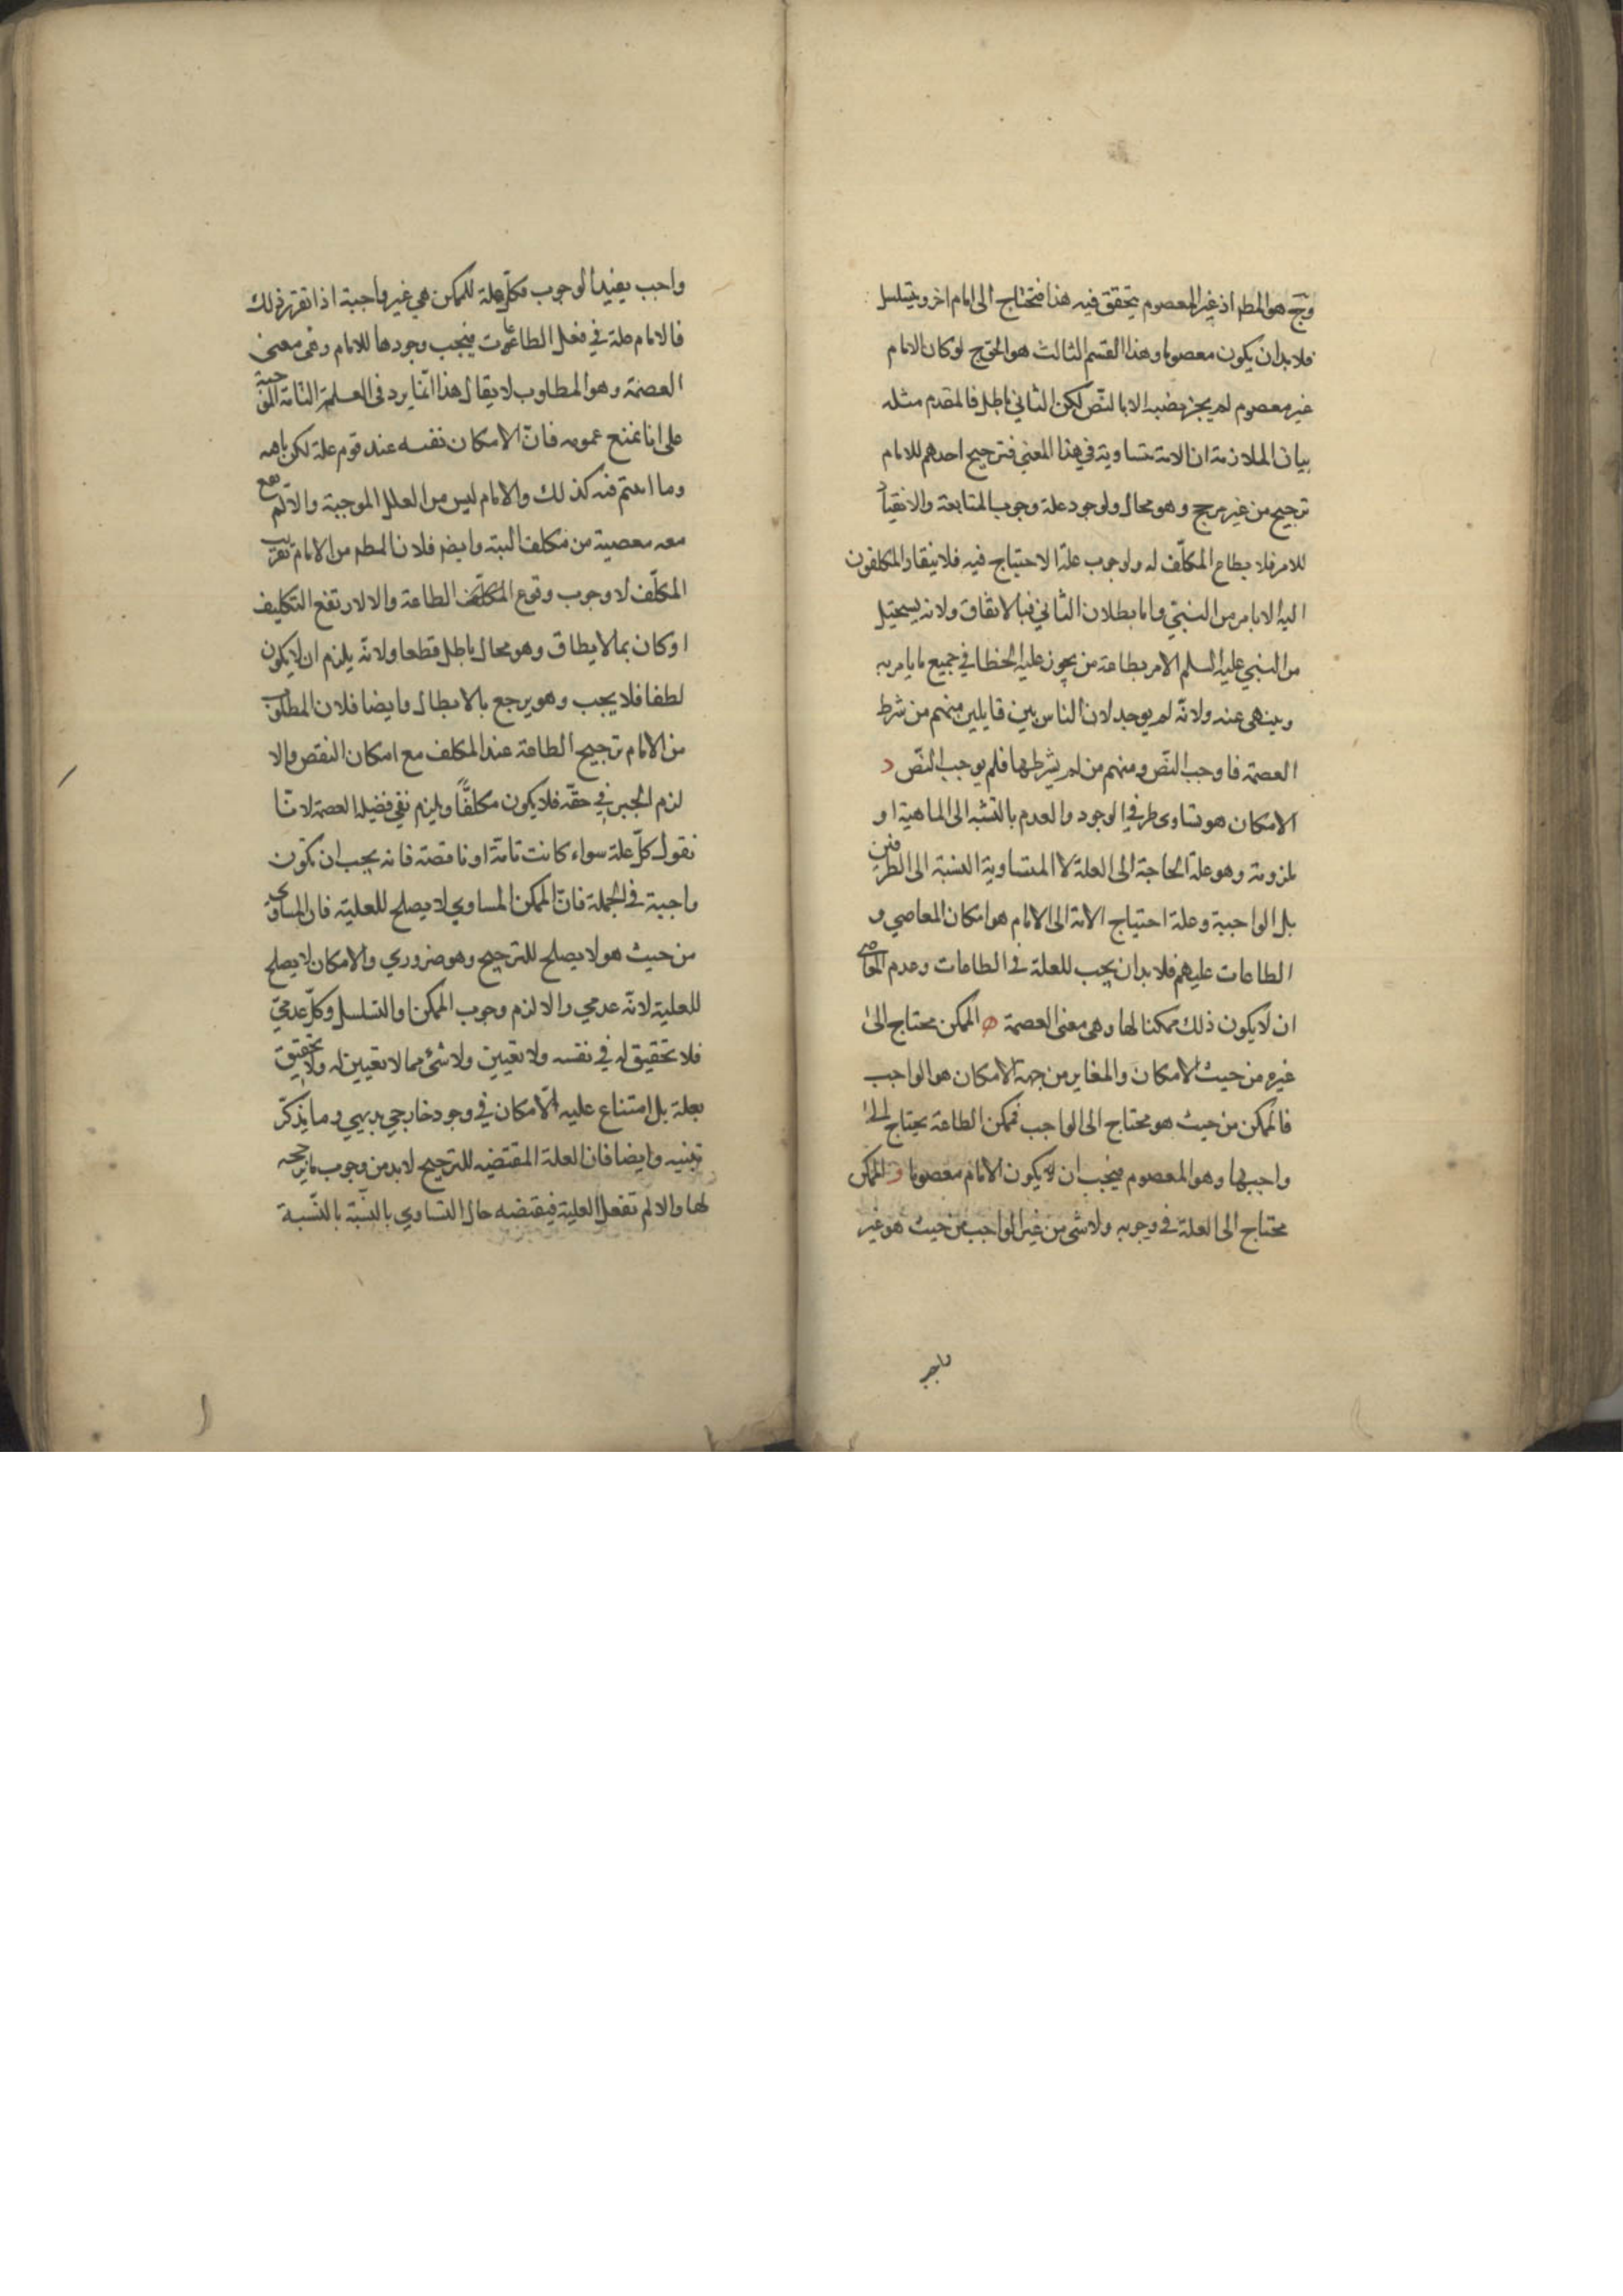 وح هو المط اذ غير المعصوم يتحقق فيه هذا فيحتاج الى امام اخر ويتسلسل
فلا بد ان يكون معصوما وهذا القسم الثالث هو المحوج لو كان الامام
غير معصوم لم يجز نصبه الا بالنصّ لكن الثاني باطل فالمقدم مثله
بيان الملازمة ان الامة متساوية في هذا المعنى فترجيح احدهم للامام
ترجيح من غير مرجح وهو محال ولوجود علة وجوب المتابعة والانقياد
للامر فلا يطاع المكلّف له ولوجوب علة الاحتياج فيه فلا ينقاد المكلفون
اليه الا بامر من النبيّ واما بطلان الثاني فبالاتفاق ولانه يستحيل
من النبي عليه السلم الامر بطاعة من يجوز عليه الخطا في جميع ما يامر به
وينهى عنه ولانّه لم يوجد لان الناس بين قايلين منهم من شرط
العصمة فاوجب النصّ ومنهم من لم يشرطها فلم يوجب النصّ د
الامكان هو تساوى طرفي الوجود والعدم بالنسبة الى الماهية او
ملزومة وهو علة الحاجة الى العلة لا المتساوية النسبة الى الطرفين
بل الواجبة وعلة احتياج الامة الى الامام هو امكان المعاصي و
الطاعات عليهم فلا بد ان يجب للعلة في الطاعات وعدم المعاصي
ان لا يكون ذلك ممكنا لها وهى معنى العصمة ه الممكن محتاج الى
غيره من حيث الامكان والمغاير من جهة الامكان هو الواجب
فالممكن من حيث هو محتاج الى الواجب فممكن الطاعة يحتاج الى
واجبها وهو المعصوم فيجب ان يكون الامام معصوما و الممكن
محتاج الى العلة في وجوبه ولا شى من غير الواجب من حيث هو غير
واجب
واجب يفيد الوجوب فكلّ علة للممكن هي غير واجبة اذا تقرر ذلك
فالامام علة في فعل الطاعات فيجب وجودها للامام وهى معنى
العصمة وهو المطلوب لا يقال هذا انّما يرد فى العلة التامة الموجبة
على انا نمنع عمومه فانّ الامكان نفسه عند قوم علة لكن باهـ
وما اعتم فيه كذلك والامام ليس من العلل الموجبة والا لم يقع
معه معصية من مكلف البتة وايضم فلان المطم من الامام تقريب
المكلّف لا وجوب وقوع المكلف الطاعة والا لارتفع التكليف
او كان بما لا يطاق وهو محال باطل قطعا ولانّه يلزم ان لا يكون
لطفا فلا يجب وهو يرجع بالابطال وايضا فلان المطلوب
من الامام ترجيح الطاعة عند المكلف مع امكان النقص والا
لزم الجبر في حقّه فلا يكون مكلّفًا ويلزم نفي فضيلة العصمة لانّا
نقول كلّ علة سواء كانت تامّة او ناقصة فانه يجب ان تكون
واجبة في الجملة فانّ الممكن المساوي لا يصلح للعلية فان المساوى
من حيث هو لا يصلح للترجيح وهو ضروري والامكان لا يصلح
للعلية لانّه عدمي والا لزم وجوب الممكن او التسلسل وكلّ عدميّ
فلا تحقيق له في نفسه ولا تعيين ولا شئ مما لا تعيين له ولا تحقيق
بعلة بل امتناع عليه الامكان في وجود خارجي بديهي وما يذكر
تنبيه وايضا فان العلة المقتضيه للترجيح لا بد من وجوب ما يرجحه
لها والا لم تفعل العلية فيقتضه حال التساوي بالنسبة بالنّسبة